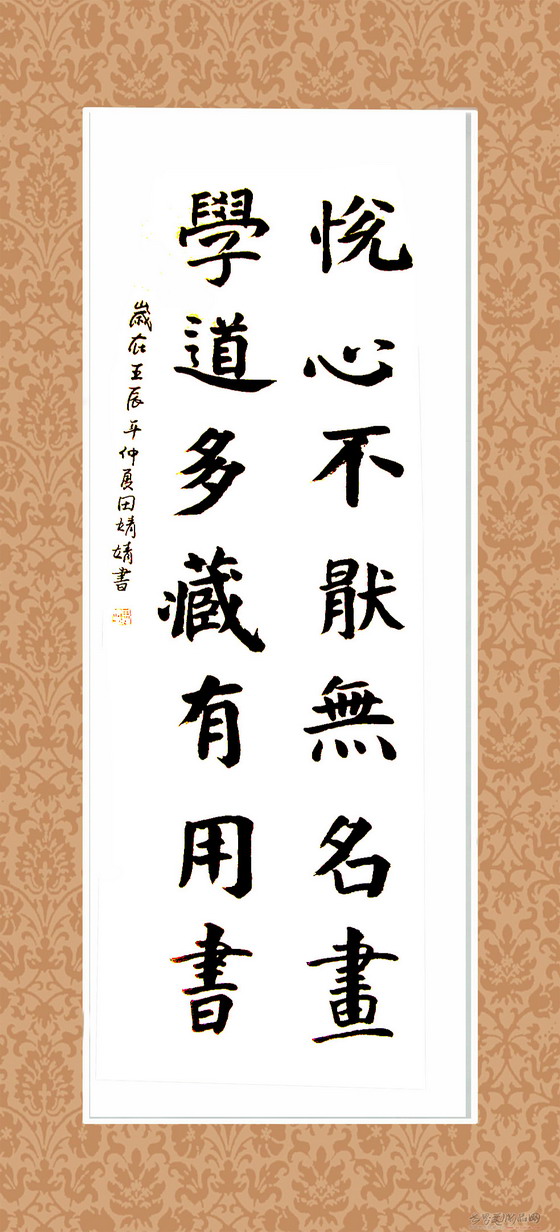 悦心不猒無名畫
學道多藏有用書
歲在壬辰年仲夏田婧婧書